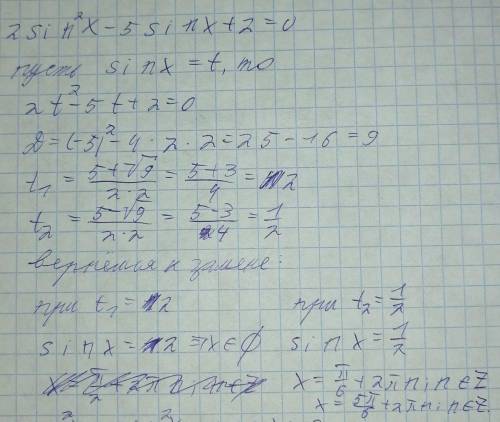 2sin²x - 5sinx + 2 = 0
пусть sinx = t, то
2t² - 5t + 2 = 0
D = (-5)² - 4 · 2 · 2 = 25 - 16 = 9
t₁ = (5+√9)/(2·2) = (5+3)/4 = 2
t₂ = (5-√9)/(2·2) = (5-3)/4 = 1/2
вернёмся к замене:
при t₁ = 2 при t₂ = 1/2
sinx = 2 ⇒ x ∈ ∅ sinx = 1/2
x = π/6 + 2πn, n ∈ Z
x = 5π/6 + 2πn, n ∈ Z.